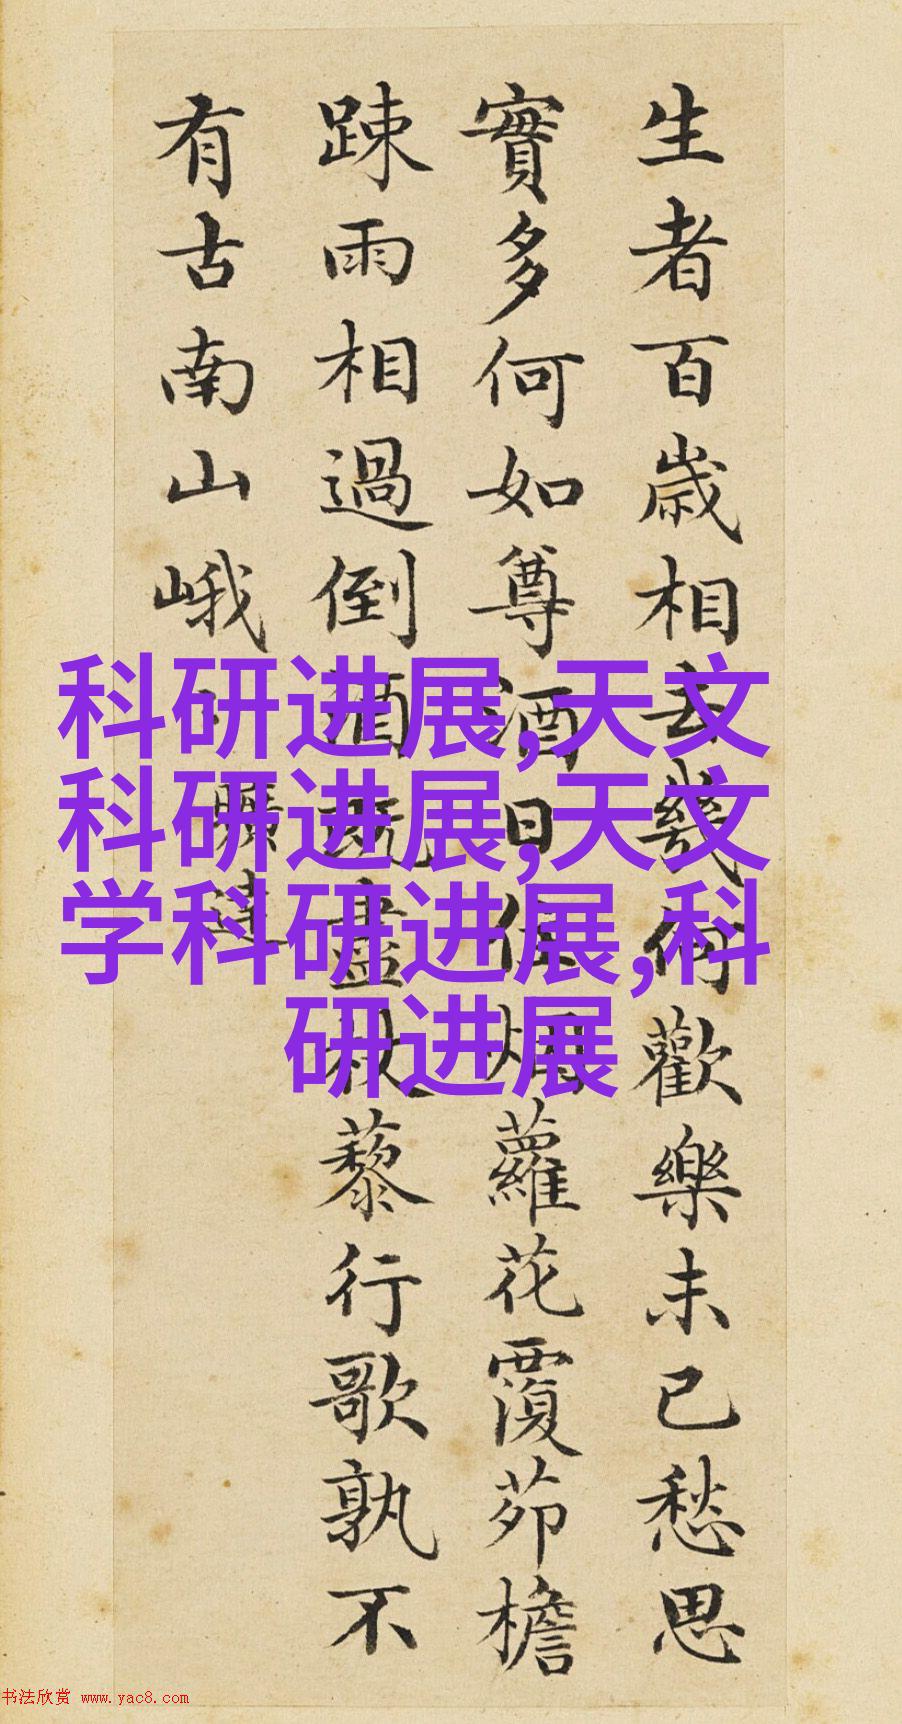 生者百歲相去幾何歡樂未已愁思
實多何如尊酒日往烟蘿花覆茆檐
踈雨相過倒酒既盡杖藜行歌孰不
有古南山峨
曠達
科研进展,天文
科研进展,天文
学科研进展,科
研进展
书法欣赏 www.yac8.com